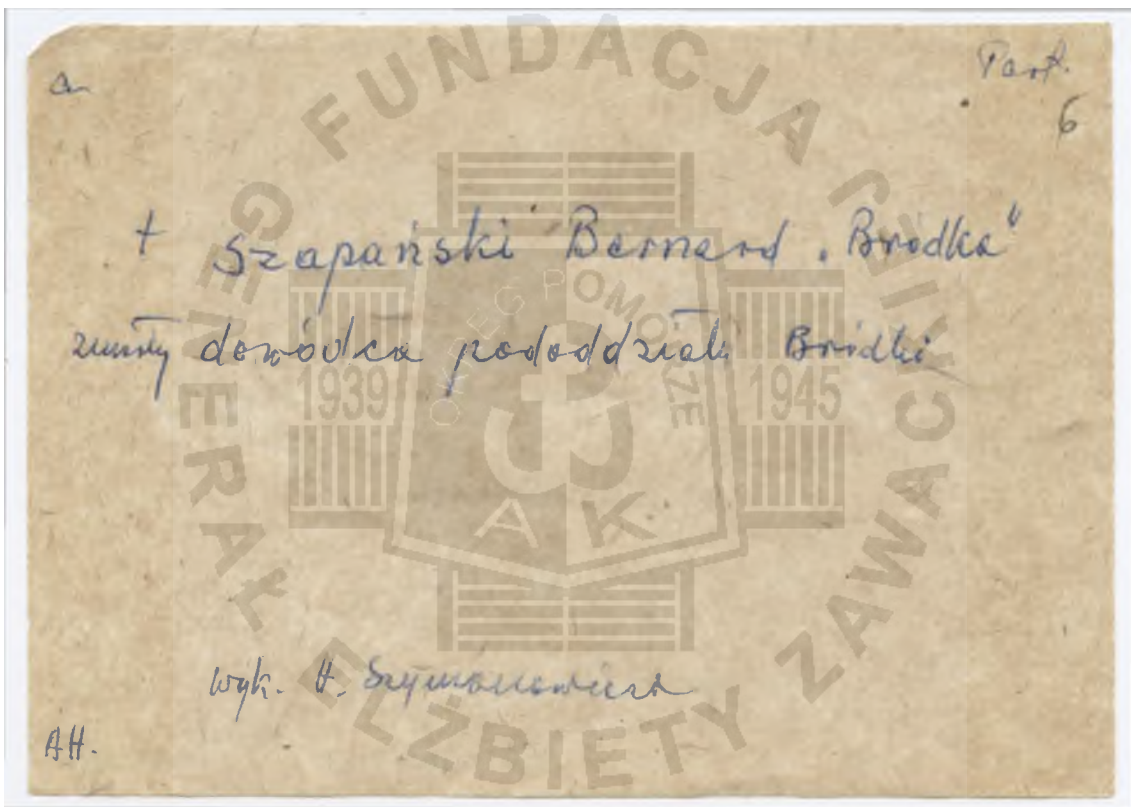 a
Part.
6
+ Szapański Bernard „Bródka"
zmarły dowódca pododdziału Bródki
wyk. H. Szymanowicza
AH.
FUNDACJA GENERAŁ ELŻBIETY ZAWACKIEJ
OKRĘG POMORZE
1939
1945
AK